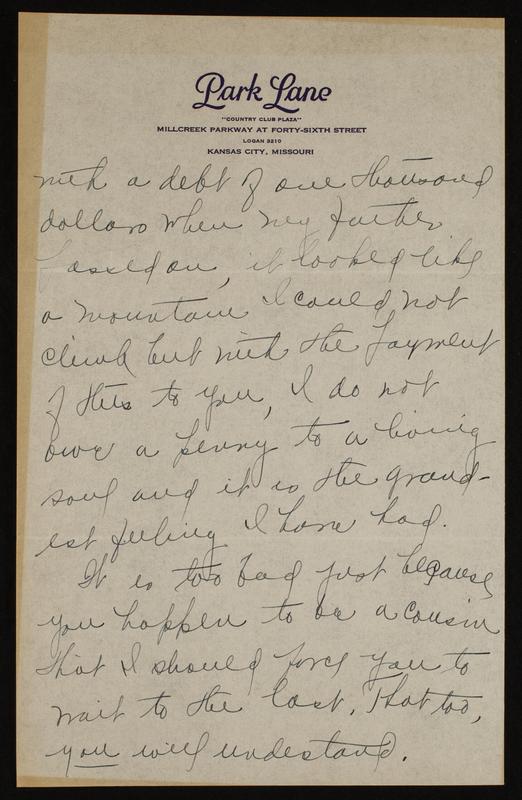 Park Lane
"COUNTRY CLUB PLAZA"
MILLCREEK PARKWAY AT FORTY-SIXTH STREET
LOGAN 3210
KANSAS CITY, MISSOURI
with a debt of one thousand
dollars when my father
passed on, it looked like
a mountain I could not
climb but with the payment
of this to you, I do not
owe a penny to a living
soul and it is the grand-
est feeling I have had.
It is too bad just because
you happen to be a cousin
that I should force you to
wait to the last. That too,
you will undestand.